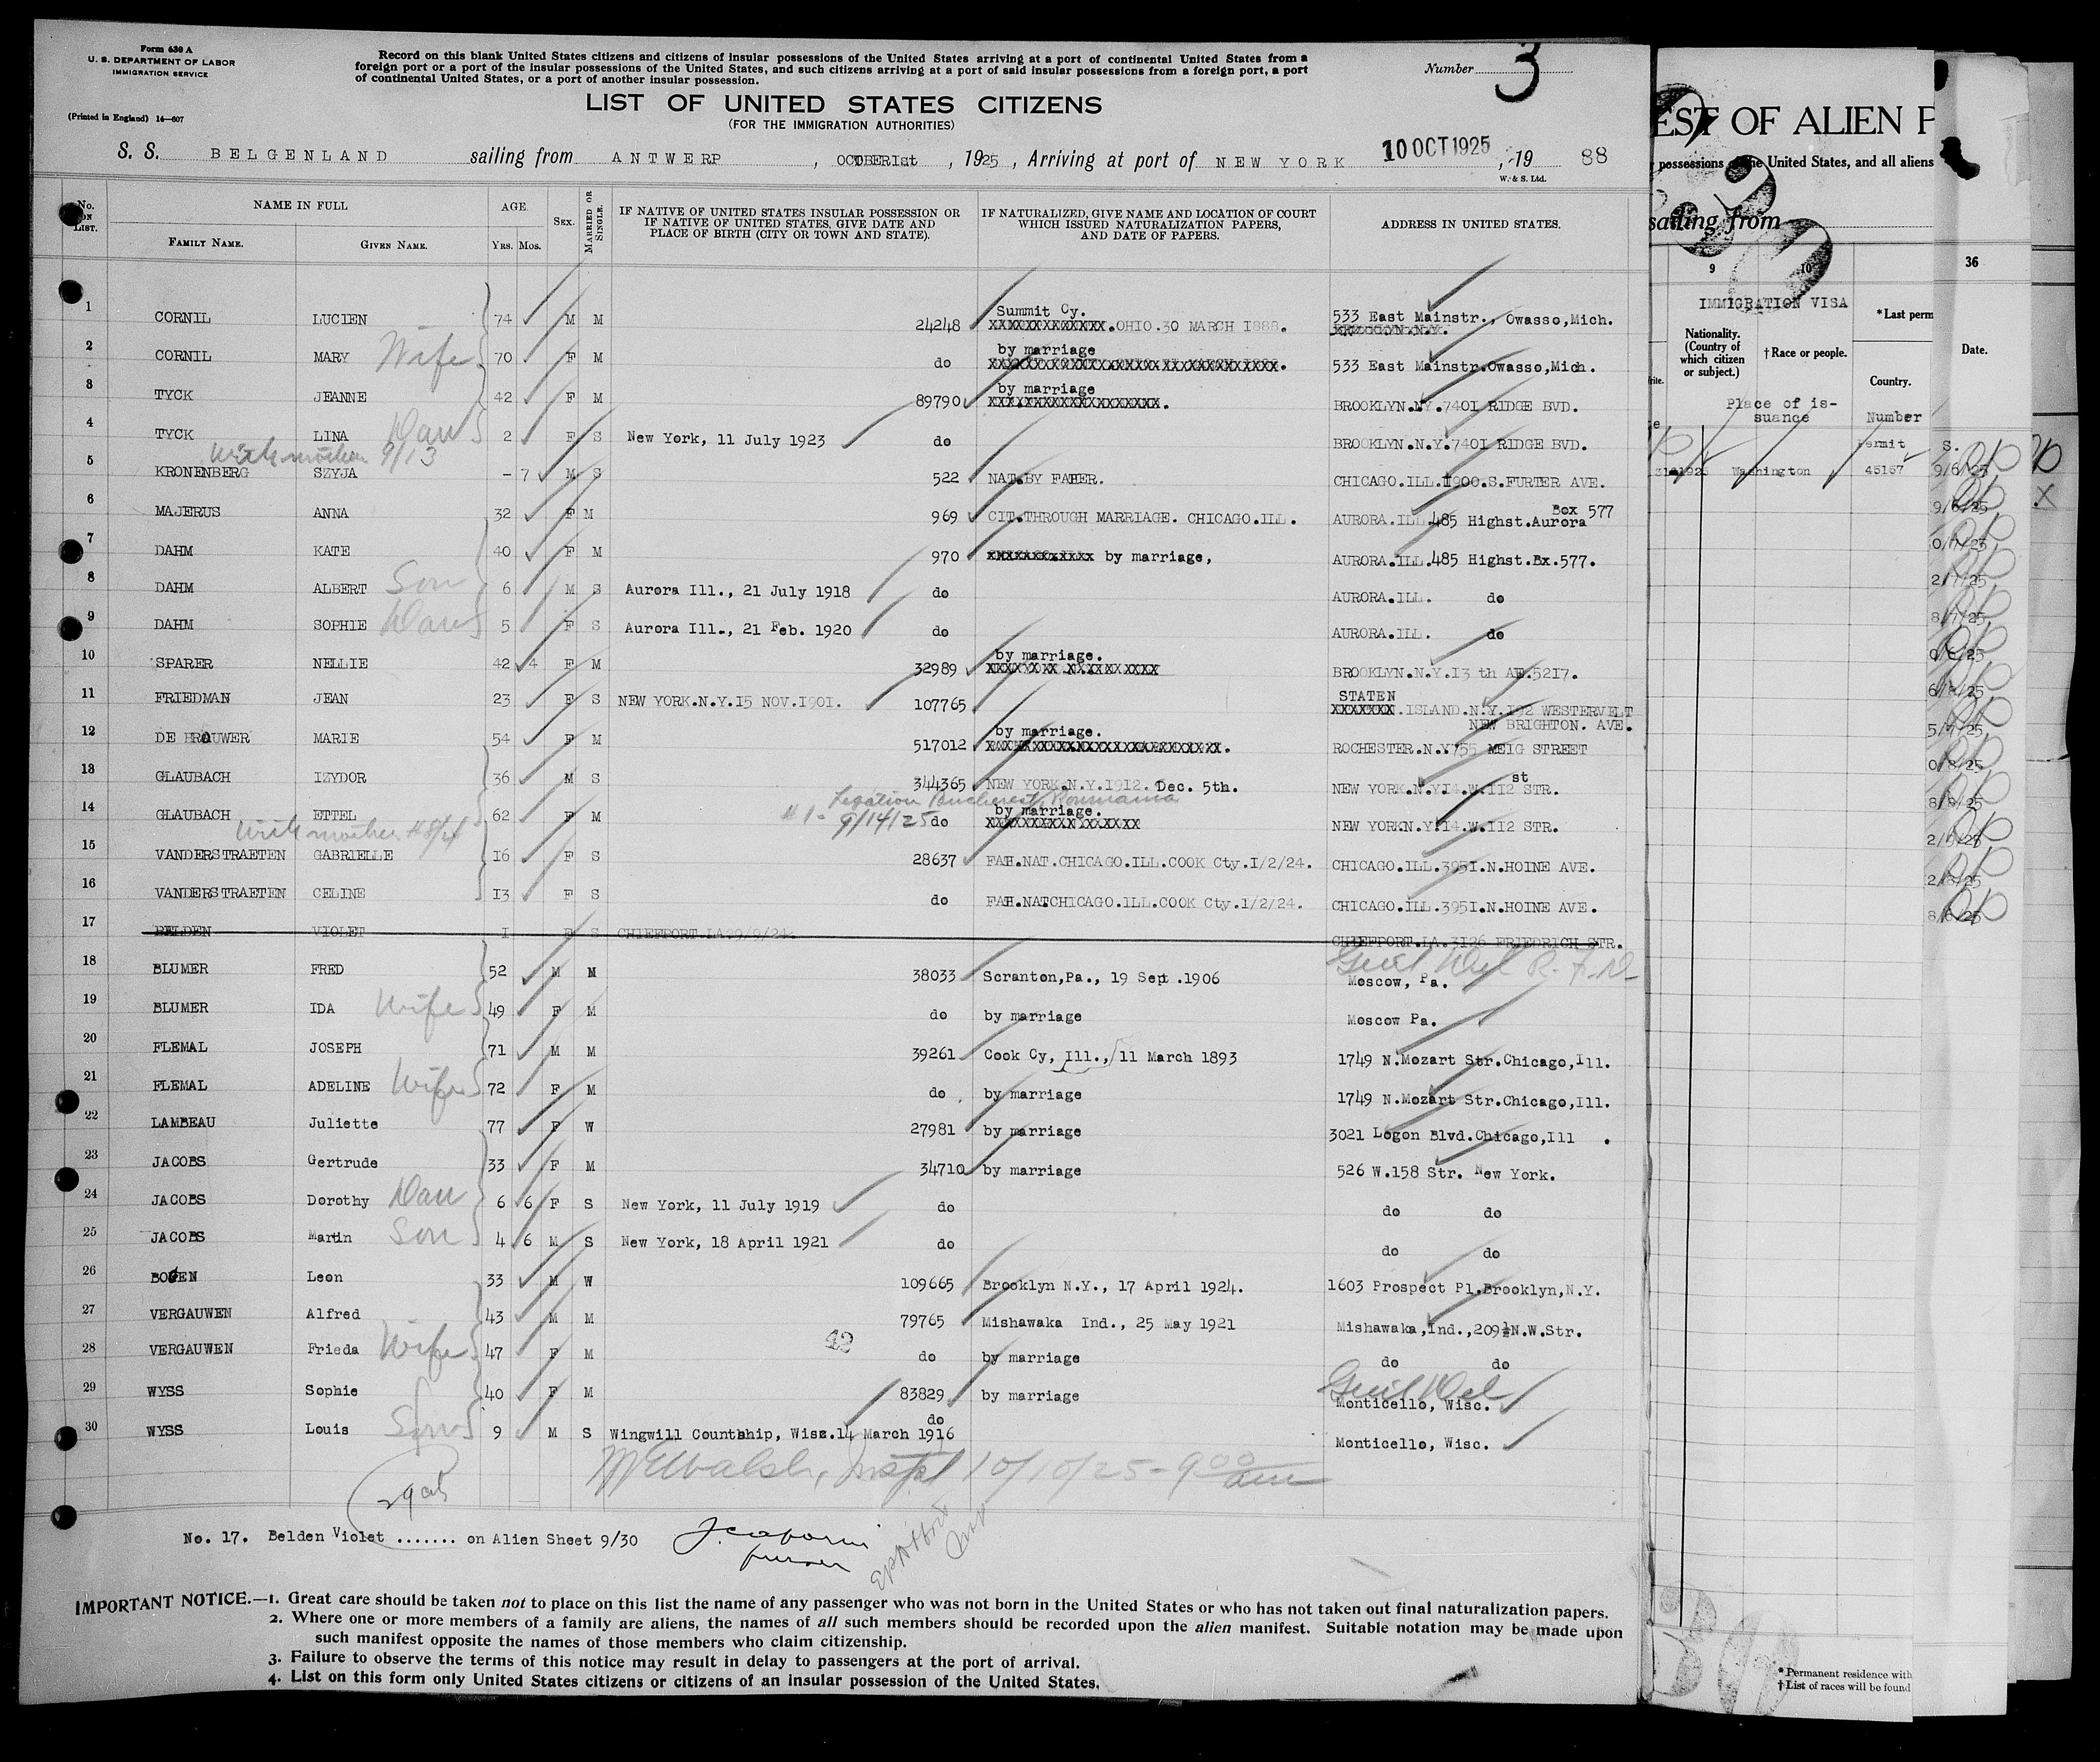 Form 630 A
U. S. DEPARTMENT OF LABOR
IMMIGRATION SERVICE
(Printed in England) 14—607
Record on this blank United States citizens and citizens of insular possessions of the United States arriving at a port of continental United States from a
foreign port or a port of the insular possessions of the United States, and such citizens arriving at a port of said insular possessions from a foreign port, a port
of continental United States, or a port of another insular possession.
Number 3
LIST OF UNITED STATES CITIZENS
(FOR THE IMMIGRATION AUTHORITIES)
S. S. BELGENLAND sailing from ANTWERP, OCTOBER 1st, 1925, Arriving at port of NEW YORK 10 OCT 1925, 19 88
W. & S. Ltd.
No. ON LIST. NAME IN FULL AGE. Sex. MARRIED OR SINGLE. IF NATIVE OF UNITED STATES INSULAR POSSESSION OR IF NATIVE OF UNITED STATES, GIVE DATE AND PLACE OF BIRTH (CITY OR TOWN AND STATE). IF NATURALIZED, GIVE NAME AND LOCATION OF COURT WHICH ISSUED NATURALIZATION PAPERS, AND DATE OF PAPERS. ADDRESS IN UNITED STATES.
FAMILY NAME. GIVEN NAME. Yrs. Mos.
1 CORNIL LUCIEN 74 M M 24248 Summit Cy. OHIO.30 MARCH I888. 533 East Mainstr., Owasso,Mich.
2 CORNIL MARY Wife 70 F M do by marriage 533 East Mainstr.Owasso,Mich.
3 TYCK JEANNE 42 F M 89790 by marriage BROOKLYN.NY.740I RIDGE BVD.
4 TYCK LINA Dau 2 F S New York, 11 July 1923 do BROOKLYN.N.Y.740I RIDGE BVD.
With mother 9/13
5 KRONENBERG SZYJA - 7 M S 522 NAT.BY FATER. CHICAGO.ILL.I900.S.FURTER AVE.
6 MAJERUS ANNA 32 F M 969 CIT.THROUGH MARRIAGE. CHICAGO.ILL. AURORA.ILL.485 Highst.Aurora Box 577
7 DAHM KATE 40 F M 970 by marriage, AURORA.ILL.485 Highst.Bx.577.
8 DAHM ALBERT Son 6 M S Aurora Ill., 21 July 1918 do AURORA.ILL. do
9 DAHM SOPHIE Dau 5 F S Aurora Ill., 21 Feb. 1920 do AURORA.ILL. do
10 SPARER NELLIE 42 4 F M 32989 by marriage. BROOKLYN.N.Y.I3 th AE.5217.
11 FRIEDMAN JEAN 23 F S NEW YORK.N.Y.I5 NOV.I90I. 107765 STATEN ISLAND.N.Y.I92 WESTERVELT
NEW BRIGHTON. AVE.
12 DE BROUWER MARIE 54 F M 517012 by marriage. ROCHESTER.N.Y.55 MEIG STREET
13 GLAUBACH IZYDOR 36 M S 344365 NEW YORK.N.Y.I912. Dec. 5th. NEW YORK.N.Y.I4.W.II2 st STR.
# 1 - Legation Bucherest, Roumania 9/14/25
14 GLAUBACH ETTEL 62 F M do by marriage. NEW YORKN.Y.I4.W.II2 STR.
With mother # 8/4
15 VANDERSTRAETEN GABRIELLE I6 F S 28637 FAH.NAT.CHICAGO.ILL.COOK Cty.I/2/24. CHICAGO.ILL.395I.N.HOINE AVE.
16 VANDERSTRAETEN CELINE I3 F S do FAH.NATCHICAGO.ILL.COOK Cty.I/2/24. CHICAGO.ILL.395I.N.HOINE AVE.
17 BELDEN VIOLET I F S CHIEFPORT.LA29/9/24. CHIEFPORT.LA.3126 FRIEDRICH STR.
18 BLUMER FRED 52 M M 38033 Scranton,Pa., 19 Sept .1906 Genl Del R. F. D. Moscow, Pa.
19 BLUMER IDA Wife 49 F M do by marriage Moscow Pa.
20 FLEMAL JOSEPH 71 M M 39261 Cook Cy, Ill., 11 March 1893 1749 N.Mozart Str.Chicago,Ill.
21 FLEMAL ADELINE Wife 72 F M do by marriage 1749 N.Mozart Str.Chicago,Ill.
22 LAMBEAU Juliette 77 F W 27981 by marriage 3021 Logon Blvd.Chicago,Ill .
23 JACOBS Gertrude 33 F M 34710 by marriage 526 W.158 Str. New York.
24 JACOBS Dorothy Dau 6 6 F S New York, 11 July 1919 do do do
25 JACOBS Martin Son 4 6 M S New York, 18 April 1921 do do do
26 BOGEN Leon 33 M W 109665 Brooklyn N.Y., 17 April 1924. 1603 Prospect Pl.Brooklyn,N.Y.
27 VERGAUWEN Alfred 43 M M 79765 Mishawaka Ind., 25 May 1921 Mishawaka,Ind.,209½N.W.Str.
28 VERGAUWEN Frieda Wife 47 F M 42 do by marriage do do
29 WYSS Sophie 40 F M 83829 by marriage Genl Del Monticello, Wisc.
30 WYSS Louis Son 9 M S Wingwill Countship, Wisz.14 March 1916 do Monticello, Wisc.
10/10/25 - 9 00 am
No. 17. Belden Violet ....... on Alien Sheet 9/30
IMPORTANT NOTICE.—1. Great care should be taken not to place on this list the name of any passenger who was not born in the United States or who has not taken out final naturalization papers.
2. Where one or more members of a family are aliens, the names of all such members should be recorded upon the alien manifest. Suitable notation may be made upon
such manifest opposite the names of those members who claim citizenship.
3. Failure to observe the terms of this notice may result in delay to passengers at the port of arrival.
4. List on this form only United States citizens or citizens of an insular possession of the United States.
EST OF ALIEN P
possessions of the United States, and all aliens
sailing from
9 10 36
IMMIGRATION VISA
*Last perm
Nationality. (Country of which citizen or subject.)
†Race or people.
Date.
Country.
Place of issuance
Number
Permit S.
Washington 45157 9/6/25
* Permanent residence with
† List of races will be found